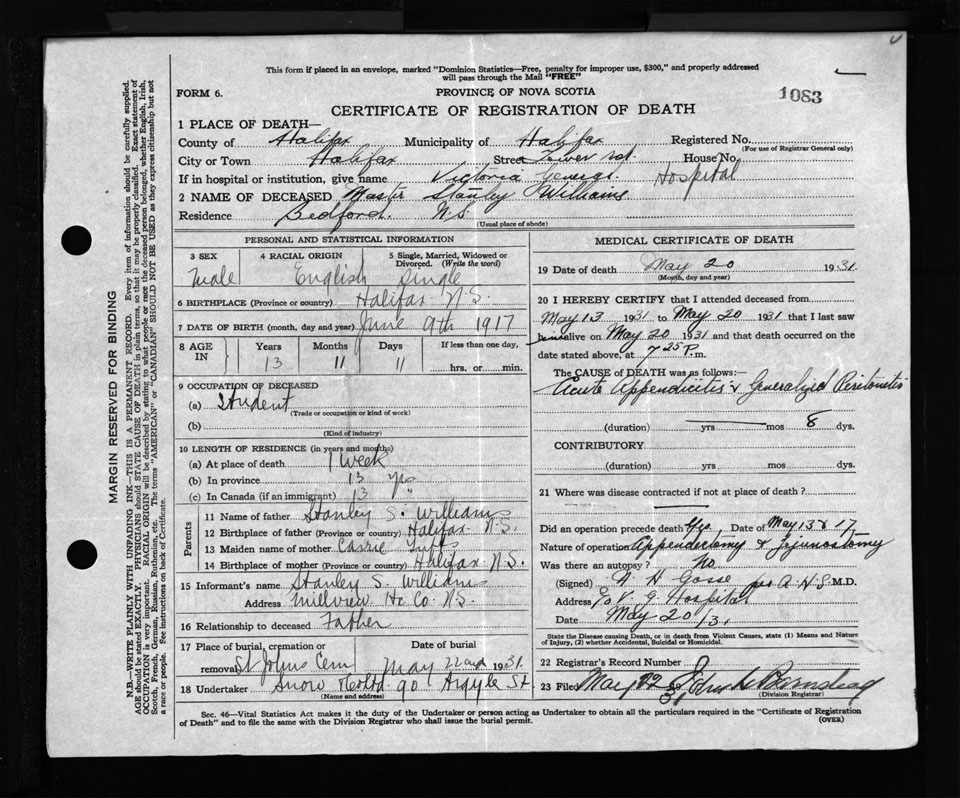 This form if placed in an envelope, marked "Dominion Statistics—Free, penalty for improper use, $300," and properly addressed
will pass through the Mail "FREE"
FORM 6.
PROVINCE OF NOVA SCOTIA
1083
CERTIFICATE OF REGISTRATION OF DEATH
1 PLACE OF DEATH—
County of Halifax Municipality of Halifax Registered No.
(For use of Registrar General only)
City or Town Halifax Street Tower rd. House No.
If in hospital or institution, give name Victoria General Hospital
2 NAME OF DECEASED Master Stanley Williams
Residence Bedford. N.S.
(Usual place of abode)
PERSONAL AND STATISTICAL INFORMATION
3 SEX 4 RACIAL ORIGIN 5 Single, Married, Widowed or
Divorced. (Write the word)
Male English Single
6 BIRTHPLACE (Province or country) Halifax N.S.
7 DATE OF BIRTH (month, day and year) June 9th 1917
8 AGE IN Years Months Days If less than one day,
13 11 11 hrs. or min.
9 OCCUPATION OF DECEASED
(a) Student
(Trade or occupation or kind of work)
(b)
(Kind of industry)
10 LENGTH OF RESIDENCE (in years and months)
(a) At place of death 1 week
(b) In province 13 yrs
(c) In Canada (if an immigrant) 13 "
Parents
11 Name of father Stanley S. Williams
12 Birthplace of father (Province or country) Halifax N.S.
13 Maiden name of mother Carrie
14 Birthplace of mother (Province or country) Halifax N.S.
15 Informant's name Stanley S. William
Address Millview Hx. Co. N.S.
16 Relationship to deceased Father
17 Place of burial, cremation or Date of burial
removal St Johns Cem May 22nd 1931.
18 Undertaker Snow 90 Argyle St
(Name and address)
MEDICAL CERTIFICATE OF DEATH
19 Date of death May 20 1931.
(Month, day and year)
20 I HEREBY CERTIFY that I attended deceased from
May 13 1931 to May 20 1931 that I last saw
alive on May 20 1931 and that death occurred on the
date stated above, at 7.25 P.m.
The CAUSE of DEATH was as follows:—
Acute Appendicitis & Generalized Peritonitis
(duration) yrs mos 8 dys.
CONTRIBUTORY
(duration) yrs mos dys.
21 Where was disease contracted if not at place of death?
Did an operation precede death Yes. Date of May 13 & 17
Nature of operation Appendectomy & Jejunostomy
Was there an autopsy? No
(Signed) A. H. Gosse per A. H. S. M.D.
Address c/o V. G. Hospital
Date May 20/31
State the Disease causing Death, or in death from Violent Causes, state (1) Means and Nature
of Injury, (2) whether Accidental, Suicidal or Homicidal.
22 Registrar's Record Number
23 Filed May 22 31 John
(Division Registrar)
Sec. 46—Vital Statistics Act makes it the duty of the Undertaker or person acting as Undertaker to obtain all the particulars required in the "Certificate of Registration
of Death" and to file the same with the Division Registrar who shall issue the burial permit.
(OVER)
MARGIN RESERVED FOR BINDING
N.B.—WRITE PLAINLY WITH UNFADING INK—THIS IS A PERMANENT RECORD. Every item of information should be carefully supplied.
AGE should be stated EXACTLY. PHYSICIANS should STATE CAUSE OF DEATH in plain terms, so that it may be properly classified. Exact statement of
OCCUPATION is very important. RACIAL ORIGIN will be described by stating to what people or race the deceased person belonged, whether English, Irish,
Scotch, French, German, Russian, Ruthenian, etc. The terms "AMERICAN" or "CANADIAN" SHOULD NOT BE USED as they express citizenship but not
a race or people. See instructions on back of Certificate.